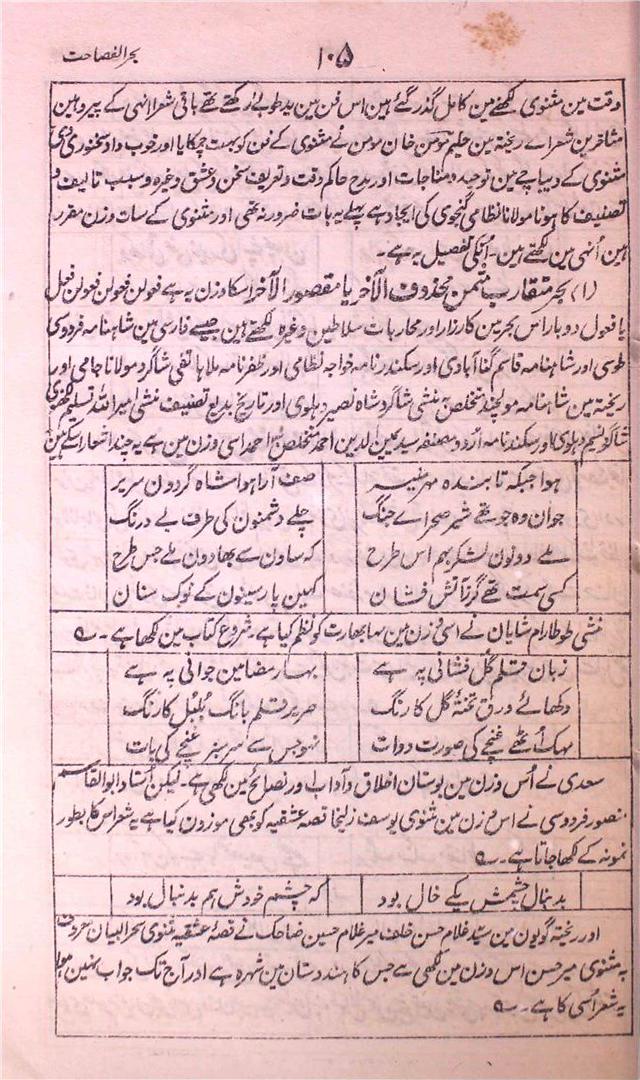 بحر الفصاحت
۱۰۵
وقت مین مثنوی لکھنے مین کامل گذر گئے ہین اس فن مین ید طولے رکھتے تھے باقی شعرا انہی کے پیرو ہین
متاخرین شعراے ریختہ مین حکیم مومن خان مومن نے مثنوی کے فن کو بہت چمکایا اور خوب داد سخنوری دی
مثنوی کے دیباچے مین توحید و مناجات اور مدح حاکم وقت و تعریف سخن و عشق وغیرہ و سبب تالیف و
تصنیف کا ہونا مولانا نظامی گنجوی کی ایجاد ہے پہلے یہ بات ضرور نہ تھی اور مثنوی کے سات وزن مقرر
ہین اُنہی مین لکھتے ہین۔ اُنکی تفصیل یہ ہے۔
(۱) بحر متقارب مثمن محذوف الآخر یا مقصور الآخر اسکا وزن یہ ہے فعولن فعولن فعولن فعل
یا فعول دو بار اس بحر مین کارزار اور محاربات سلاطین وغیرہ لکھتے ہین جیسے فارسی مین شاہنامہ فردوسی
طوسی اور شاہنامہ قاسم گنا آبادی اور سکندر نامہ خواجہ نظامی اور ظفر نامہ ملا ہاتفی شاگرد مولانا جامی اور
ریختہ مین شاہنامہ مولچند متخلص بہ منشی شاگرد شاہ نصیر دہلوی اور تاریخ بدیع تصنیف منشی امیر اللہ تسلیم لکھنوی
شاگرد نسیم دہلوی کا اور سکندر نامہ اردو مصنفہ سید معین الدین احمد متخلص بہ احمد اسی وزن مین ہے یہ چند اشعار اسکے ہین
ہوا جبکہ تابندہ مہر منیر صف آرا ہوا شاہ گردون سریر
جوان وہ جو تھے شیر صحراے جنگ چلے دشمنون کی طرف بے درنگ
ملے دونون لشکر بہم اس طرح کہ ساون سے بھادون ملے جس طرح
کسی سمت تھے گرز آتش فشان کہین پار سینون کے نوک سنان
منشی طوطا رام شایان نے اسی وزن مین مہابھارت کو نظم کیا ہے۔ شروع کتاب مین لکھا ہے۔
زبان قلم گل فشانی پہ ہے بہار مضامین جوانی پہ ہے
دکھائے ورق تختۂ گل کا رنگ صریر قلم بانگ بُلبُل کا رنگ
مہک اُٹھے غنچے کی صورت دوات نہو جس سے سرسبز غنچے کی بات
سعدی نے اُس وزن مین بوستان اخلاق و آداب اور نصائح مین لکھی ہے۔ لیکن اُستاد ابو القاسم
منصور فردوسی نے اس وزن مین مثنوی یوسف زلیخا قصہ عشقیہ کو بھی موزون کیا ہے یہ شعر اس کا بطور
نمونہ کے لکھا جاتا ہے۔
بدنبال چشمش یکے خال بود کہ چشم خودش ہم بدنبال بود
اور ریختہ گویون مین سید غلام حسن خلف میر غلام حسین ضاحک نے قصۂ عشقیہ مثنوی سحر البیان معروف
بہ مثنوی میر حسن اس وزن مین لکھی ہے جس کا ہندوستان مین شہرہ ہے اور آج تک جواب نہین ہوا
یہ شعر اُسی کا ہے۔